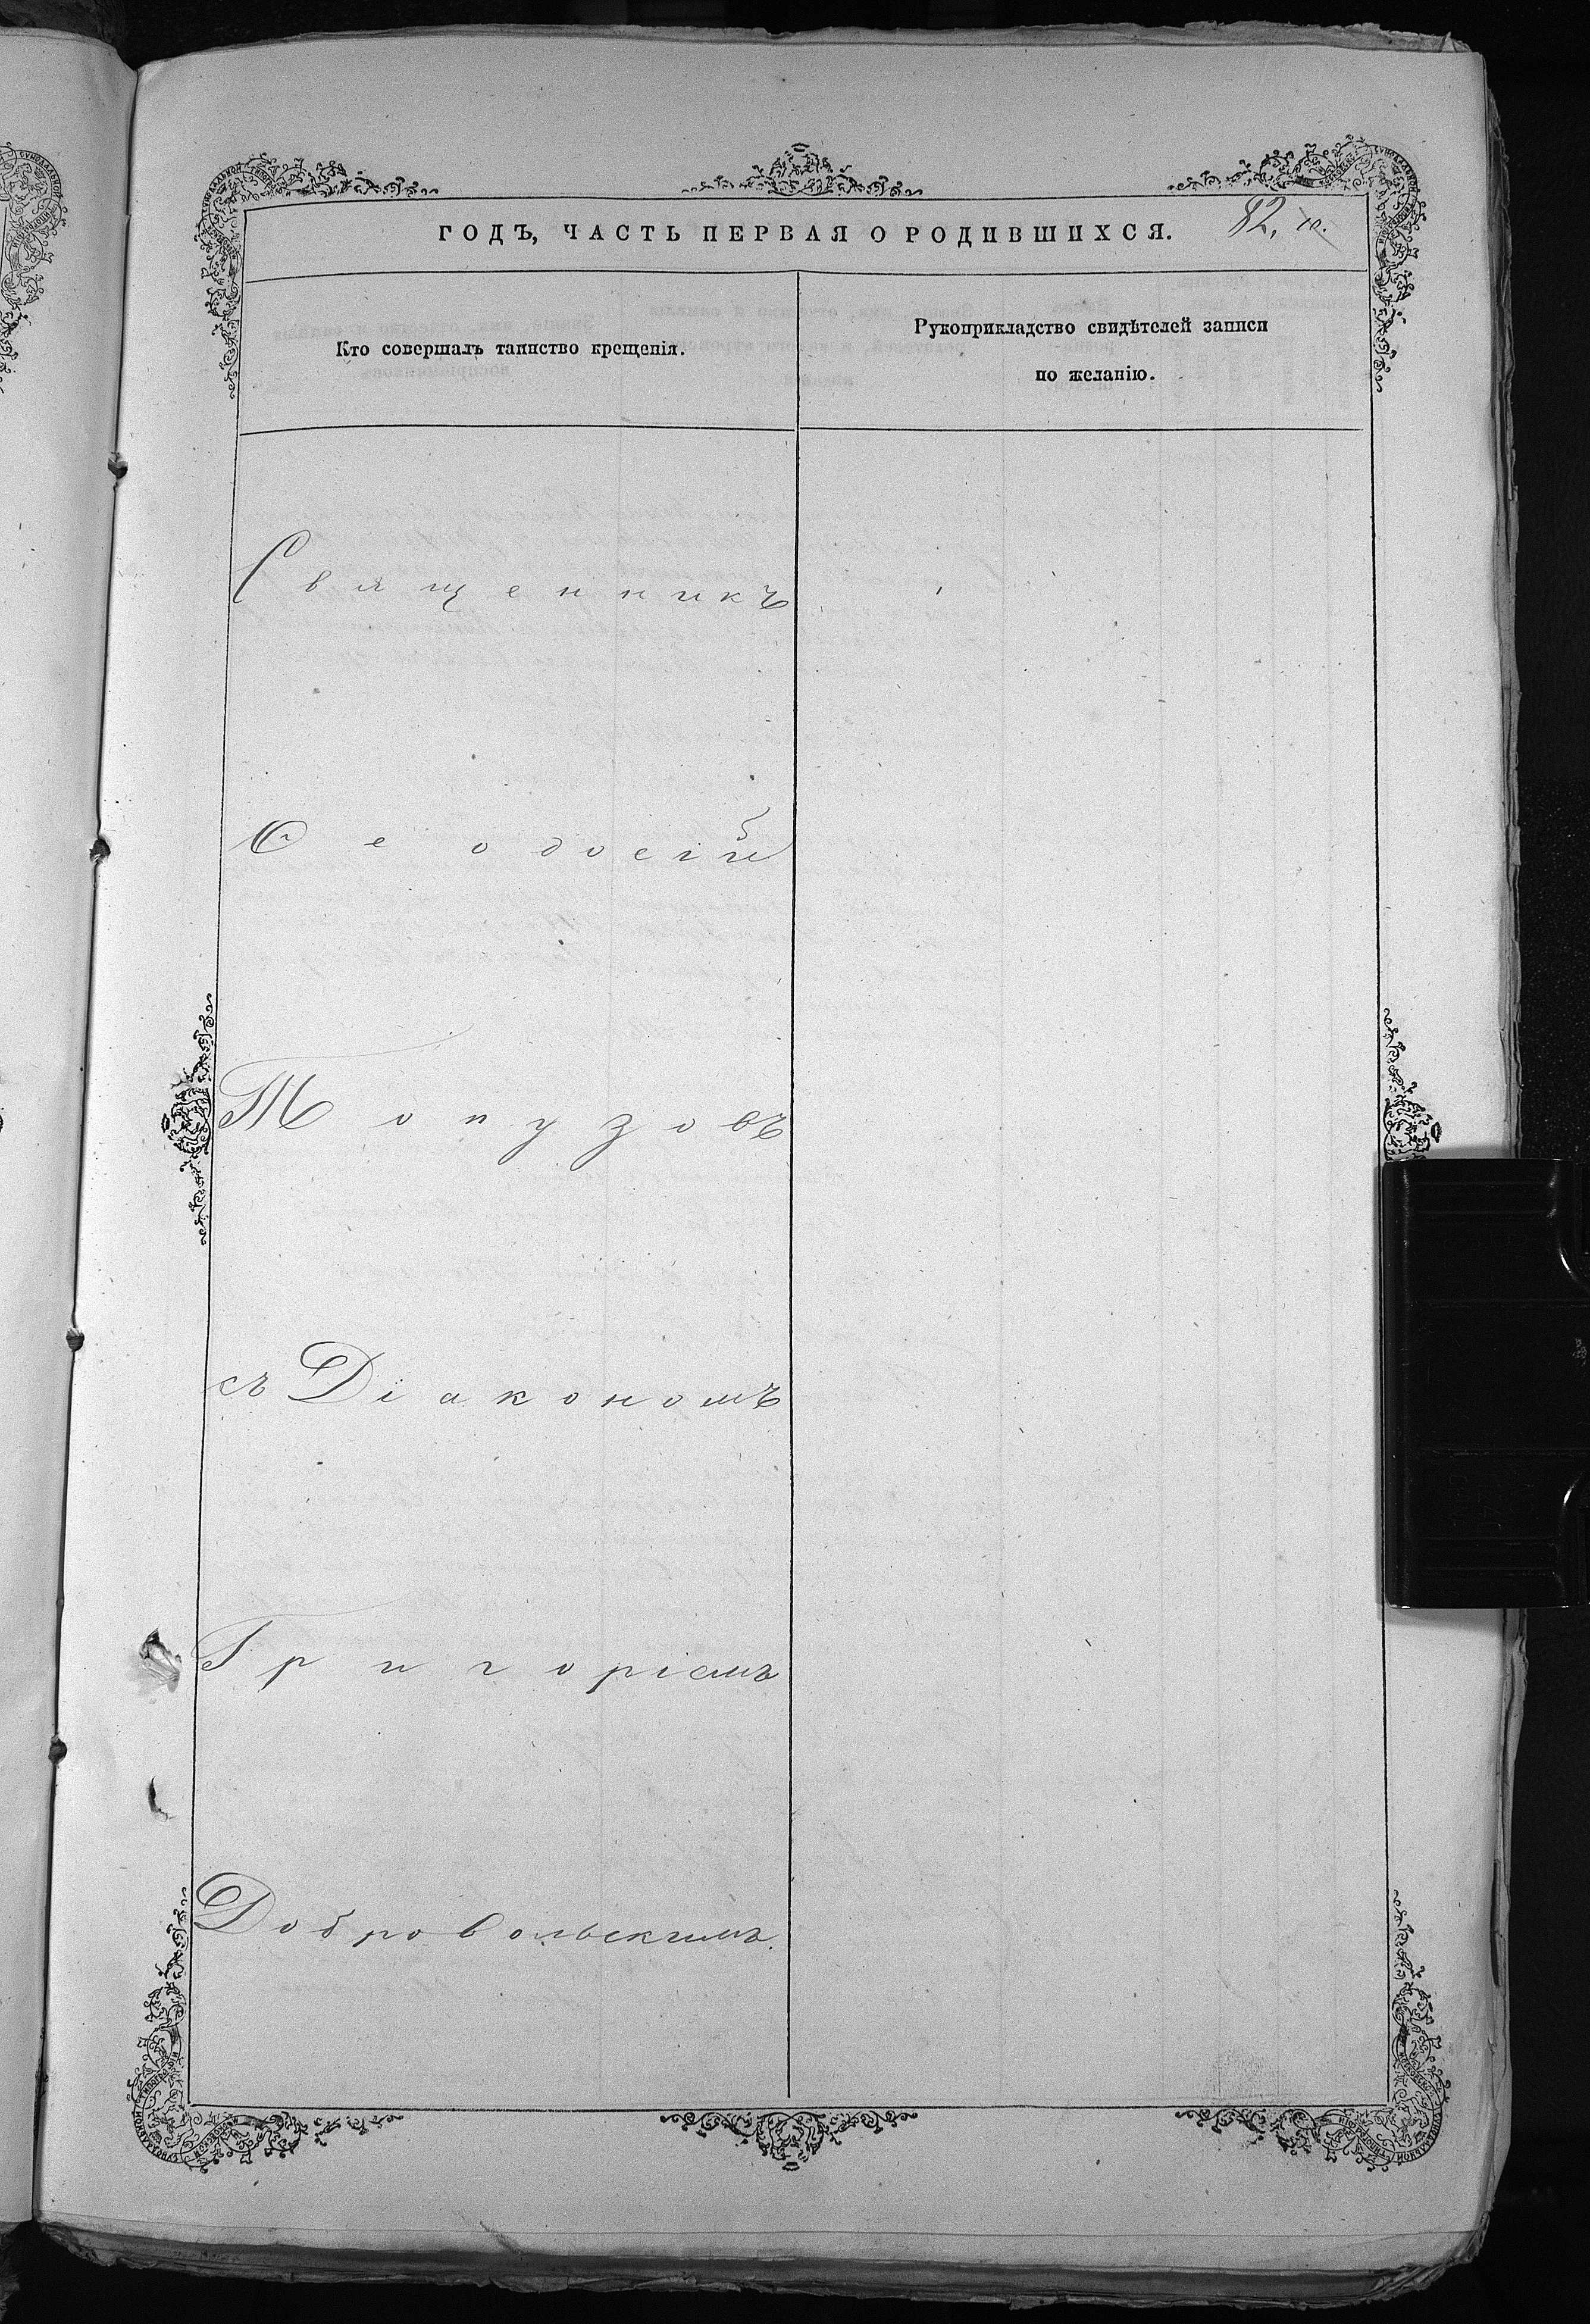 ГОДЪ, ЧАСТЬ ПЕРВАЯ О РОДИВШИХСЯ.
82. 10.
Кто совершалъ таинство крещенія.
Рукоприкладство свидѣтелей записи
по желанію.
Священникъ
Ѳеодосій
Топузовъ
съ Діакономъ
Григоріемъ
Добровольскимъ.